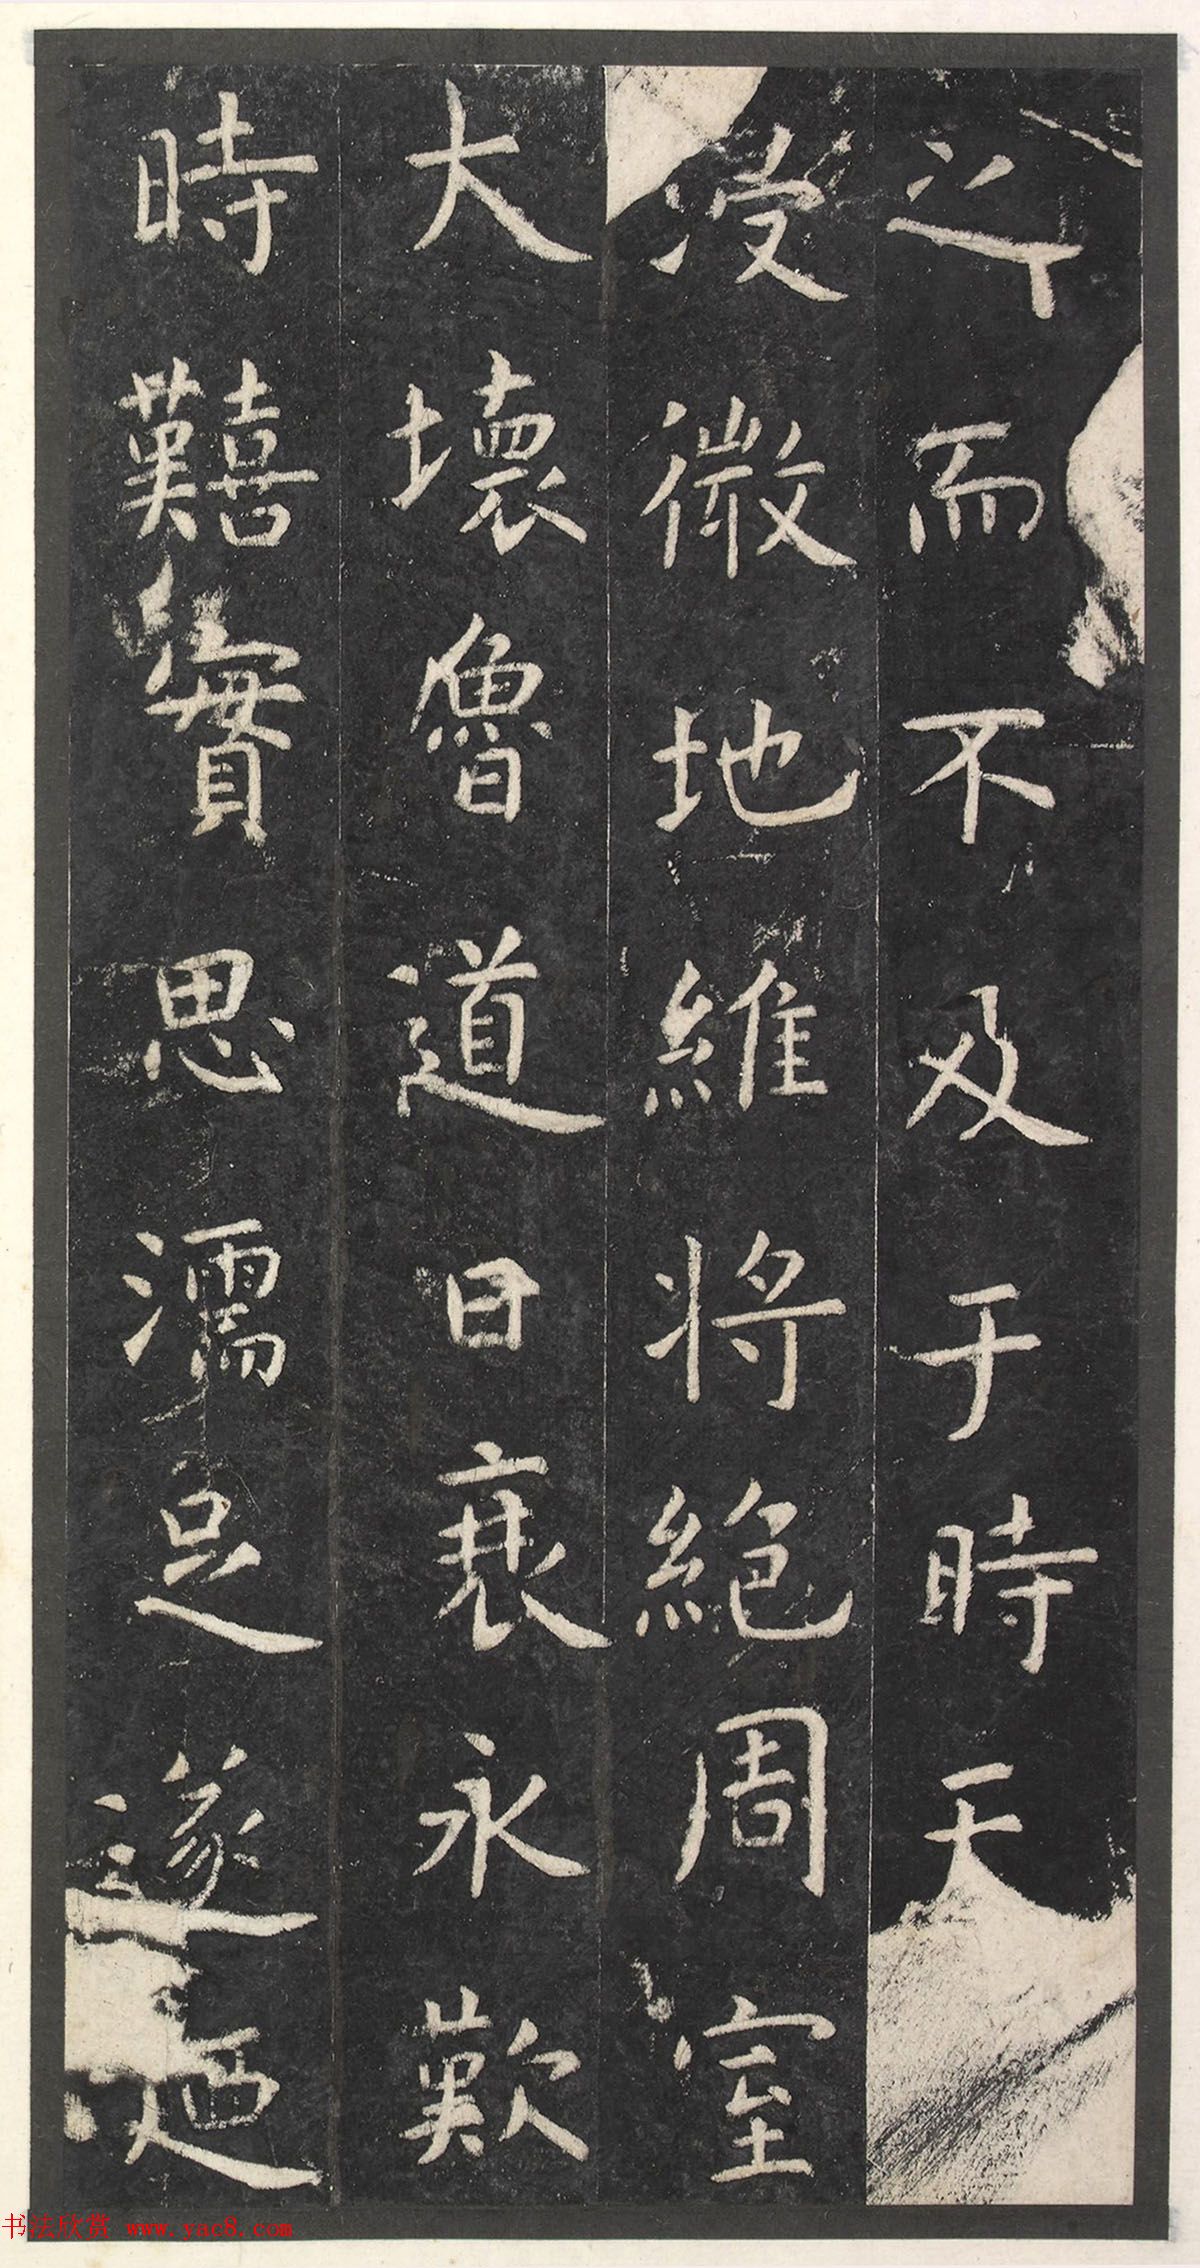 之而不及于時天
浸微地維將絕周室
大壞魯道日衰永歎
時囏實思濡足遂迺
书法欣赏 www.yac8.com